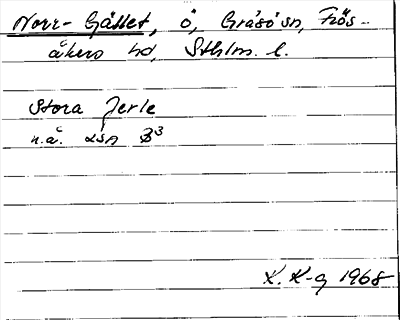 Norr-Gället, ö, Gräsö sn, Frös-
åkers hd, Sthlm. l.
Stora Jerle
n.ä. LSA B3
K. K-g 1968